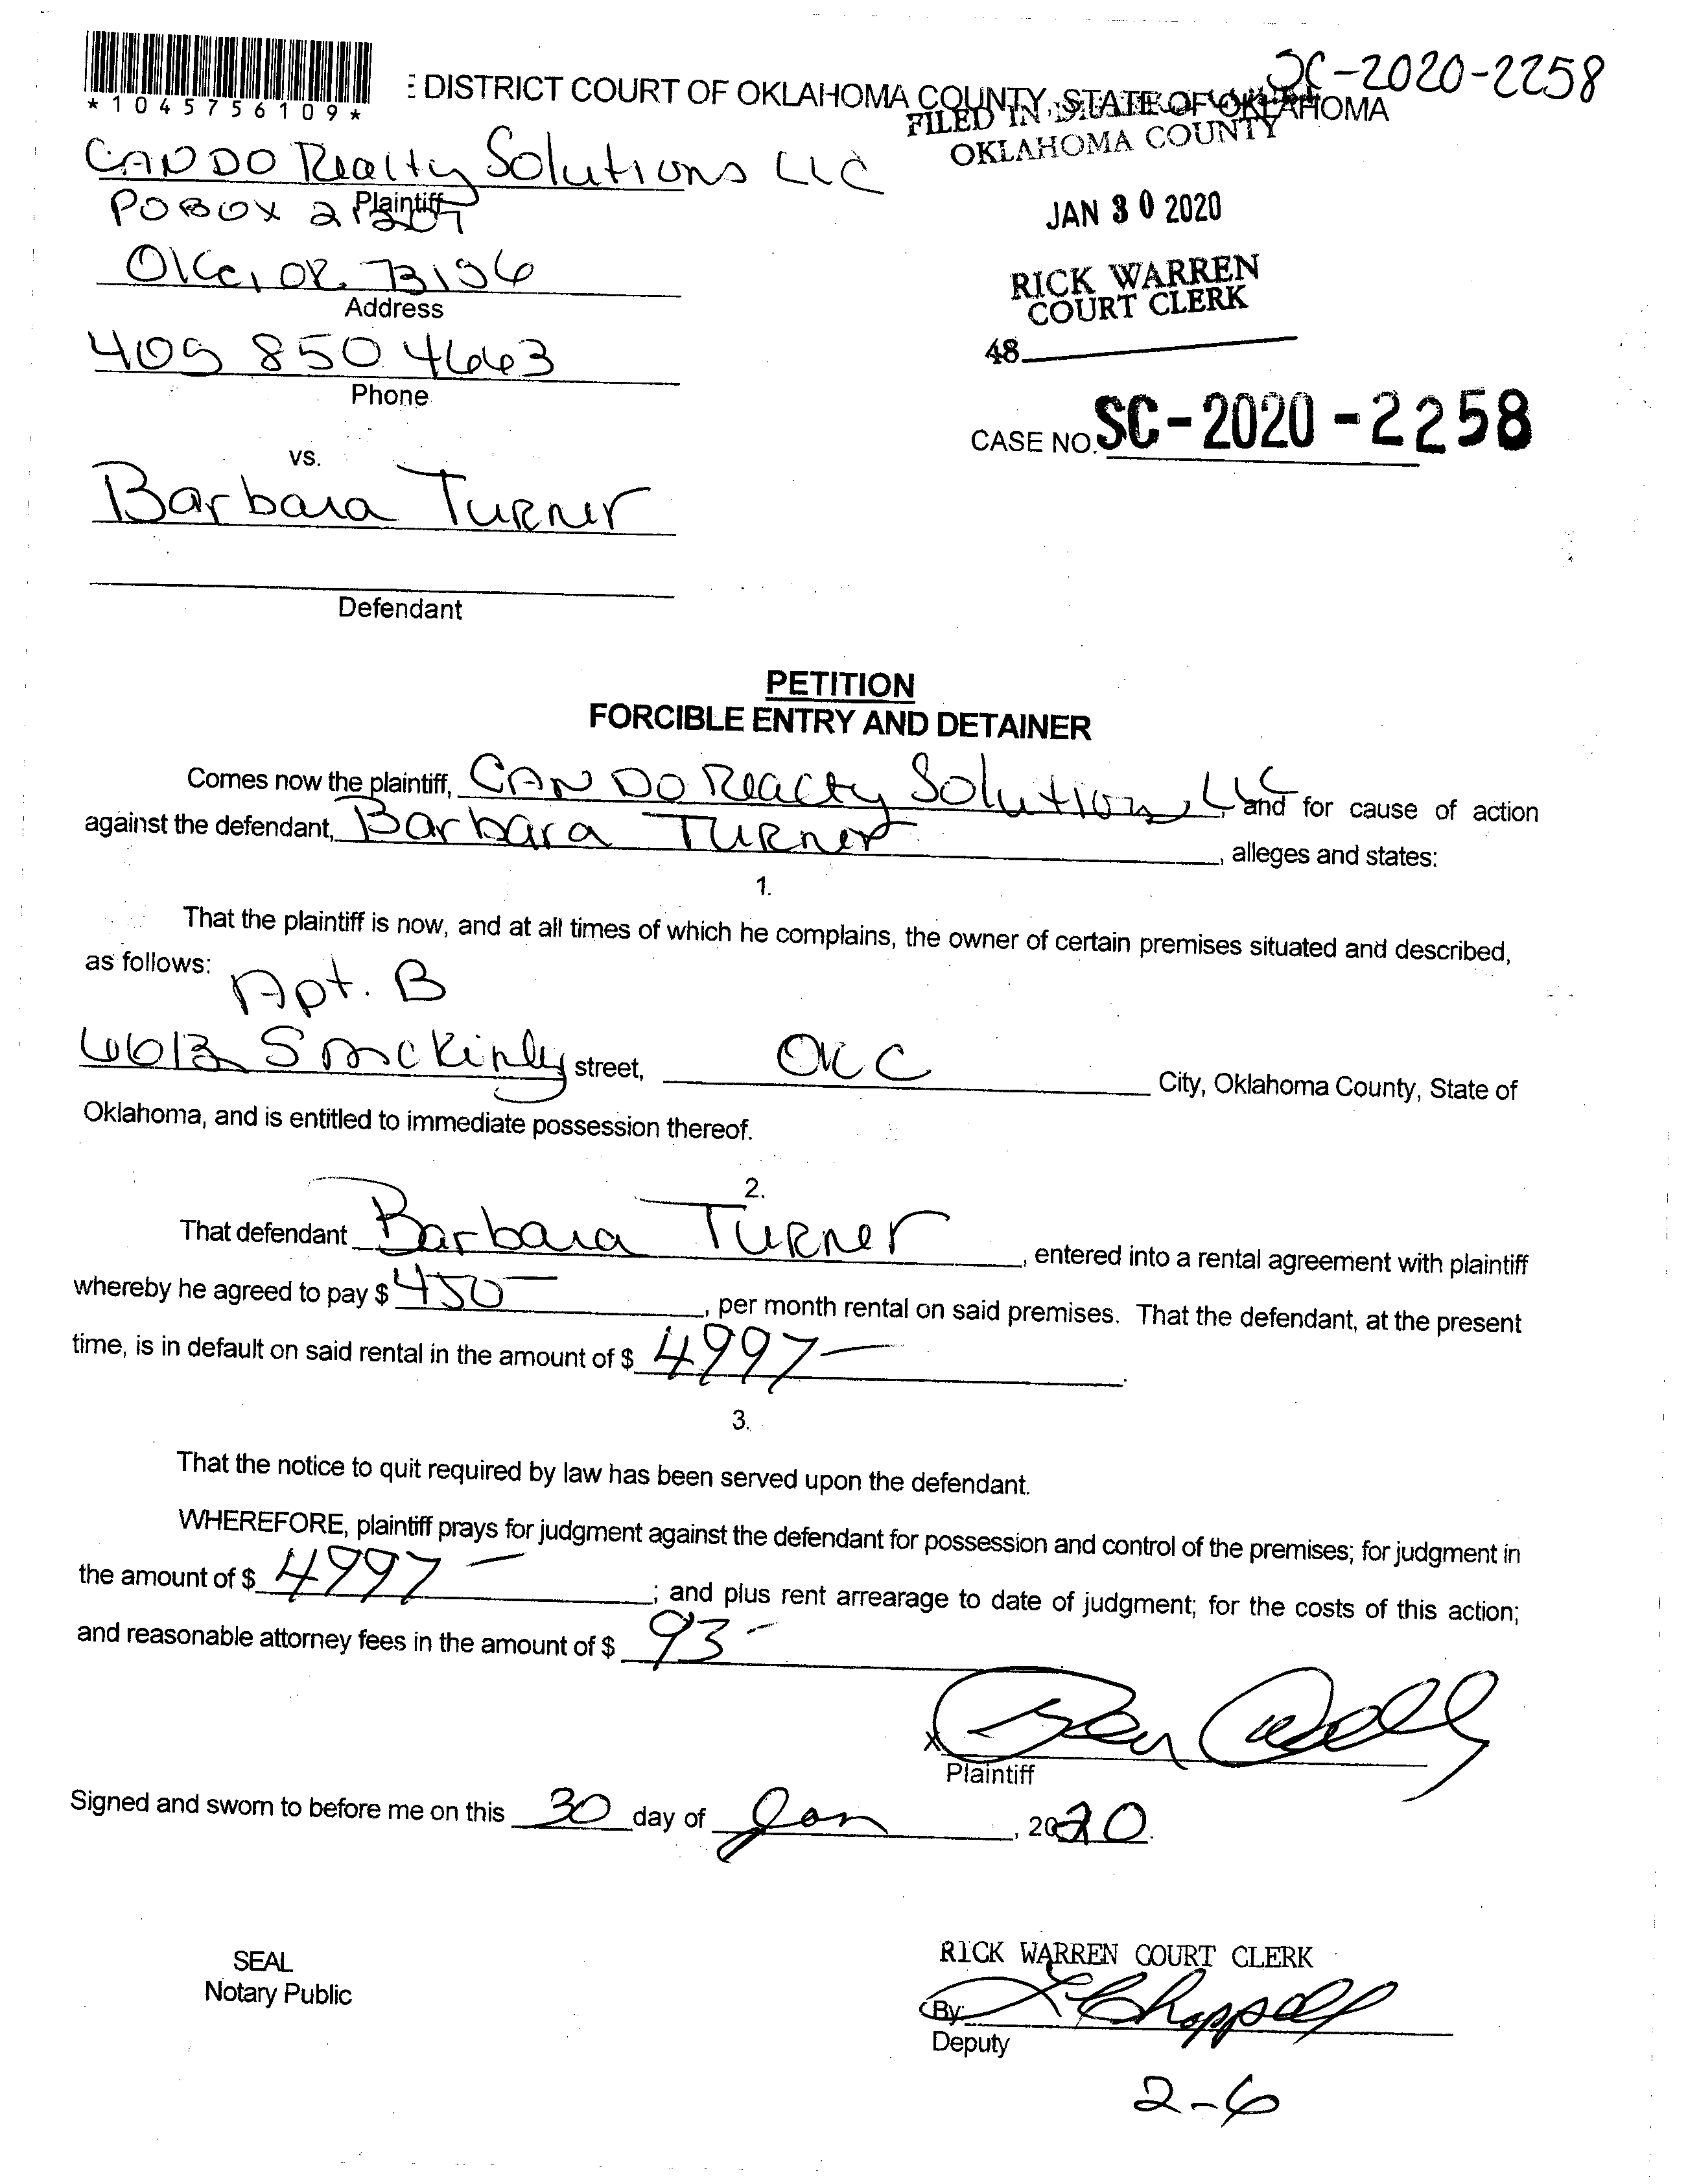 *1045756109*
SC-2020-2258
E DISTRICT COURT OF OKLAHOMA COUNTY, STATE OF OKLAHOMA
FILED IN DISTRICT COURT
OKLAHOMA COUNTY
CAN DO Realty Solutions LLC
Plaintiff
PO BOX
JAN 30 2020
OKC, OK 73156
Address
RICK WARREN
COURT CLERK
405 850 4663
Phone
48
CASE NO. SC-2020-2258
vs.
Barbara Turner
Defendant
PETITION
FORCIBLE ENTRY AND DETAINER
Comes now the plaintiff, CAN DO Realty Solutions, LLC, and for cause of action
against the defendant, Barbara Turner, alleges and states:
1.
That the plaintiff is now, and at all times of which he complains, the owner of certain premises situated and described,
as follows:
Apt. B
S McKinly street, OKC City, Oklahoma County, State of
Oklahoma, and is entitled to immediate possession thereof.
2.
That defendant Barbara Turner, entered into a rental agreement with plaintiff
whereby he agreed to pay $ 450-, per month rental on said premises. That the defendant, at the present
time, is in default on said rental in the amount of $ 4997-.
3.
That the notice to quit required by law has been served upon the defendant.
WHEREFORE, plaintiff prays for judgment against the defendant for possession and control of the premises; for judgment in
the amount of $ 4997-; and plus rent arrearage to date of judgment; for the costs of this action;
and reasonable attorney fees in the amount of $ 93-
X
Plaintiff
Signed and sworn to before me on this 30 day of Jan, 2020.
SEAL
Notary Public
RICK WARREN COURT CLERK
By: Chappell
Deputy
2-6